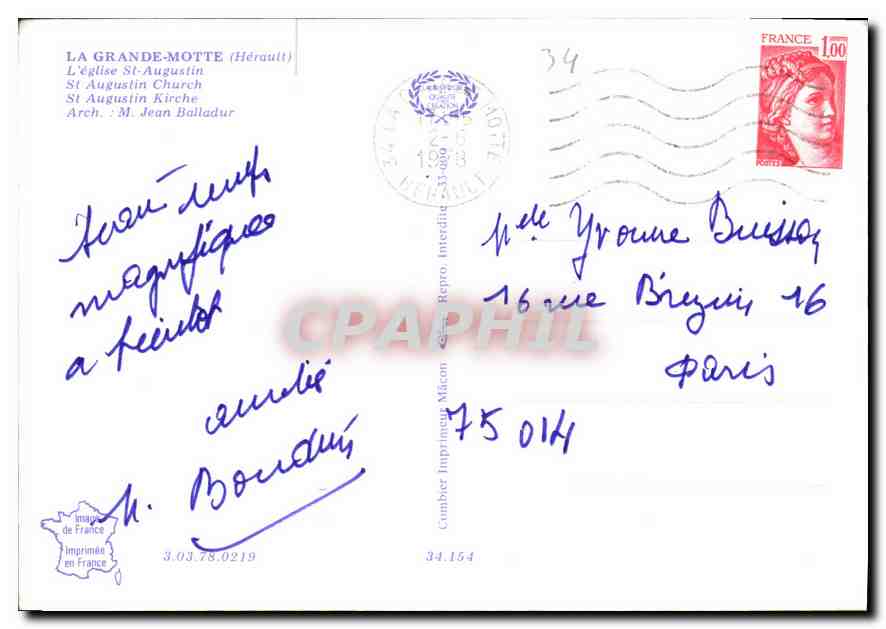 LA GRANDE-MOTTE (Hérault)
L'église St-Augustin
St Augustin Church
St Augustin Kirche
Arch. : M. Jean Balladur
34
FRANCE 1,00
POSTES
34 LA MOTTE
1978
HERAULT
QUALITÉ
CREATION
magnifiques
a bientot
amitié
M.
Melle Yvonne Buisson
16 rue Brezin 16
Paris
75 014
CPAPHIL
Combier Imprimeur Mâcon
Repro. Interdite
Image
de France
Imprimée
en France
3.03.78.0219
34.154